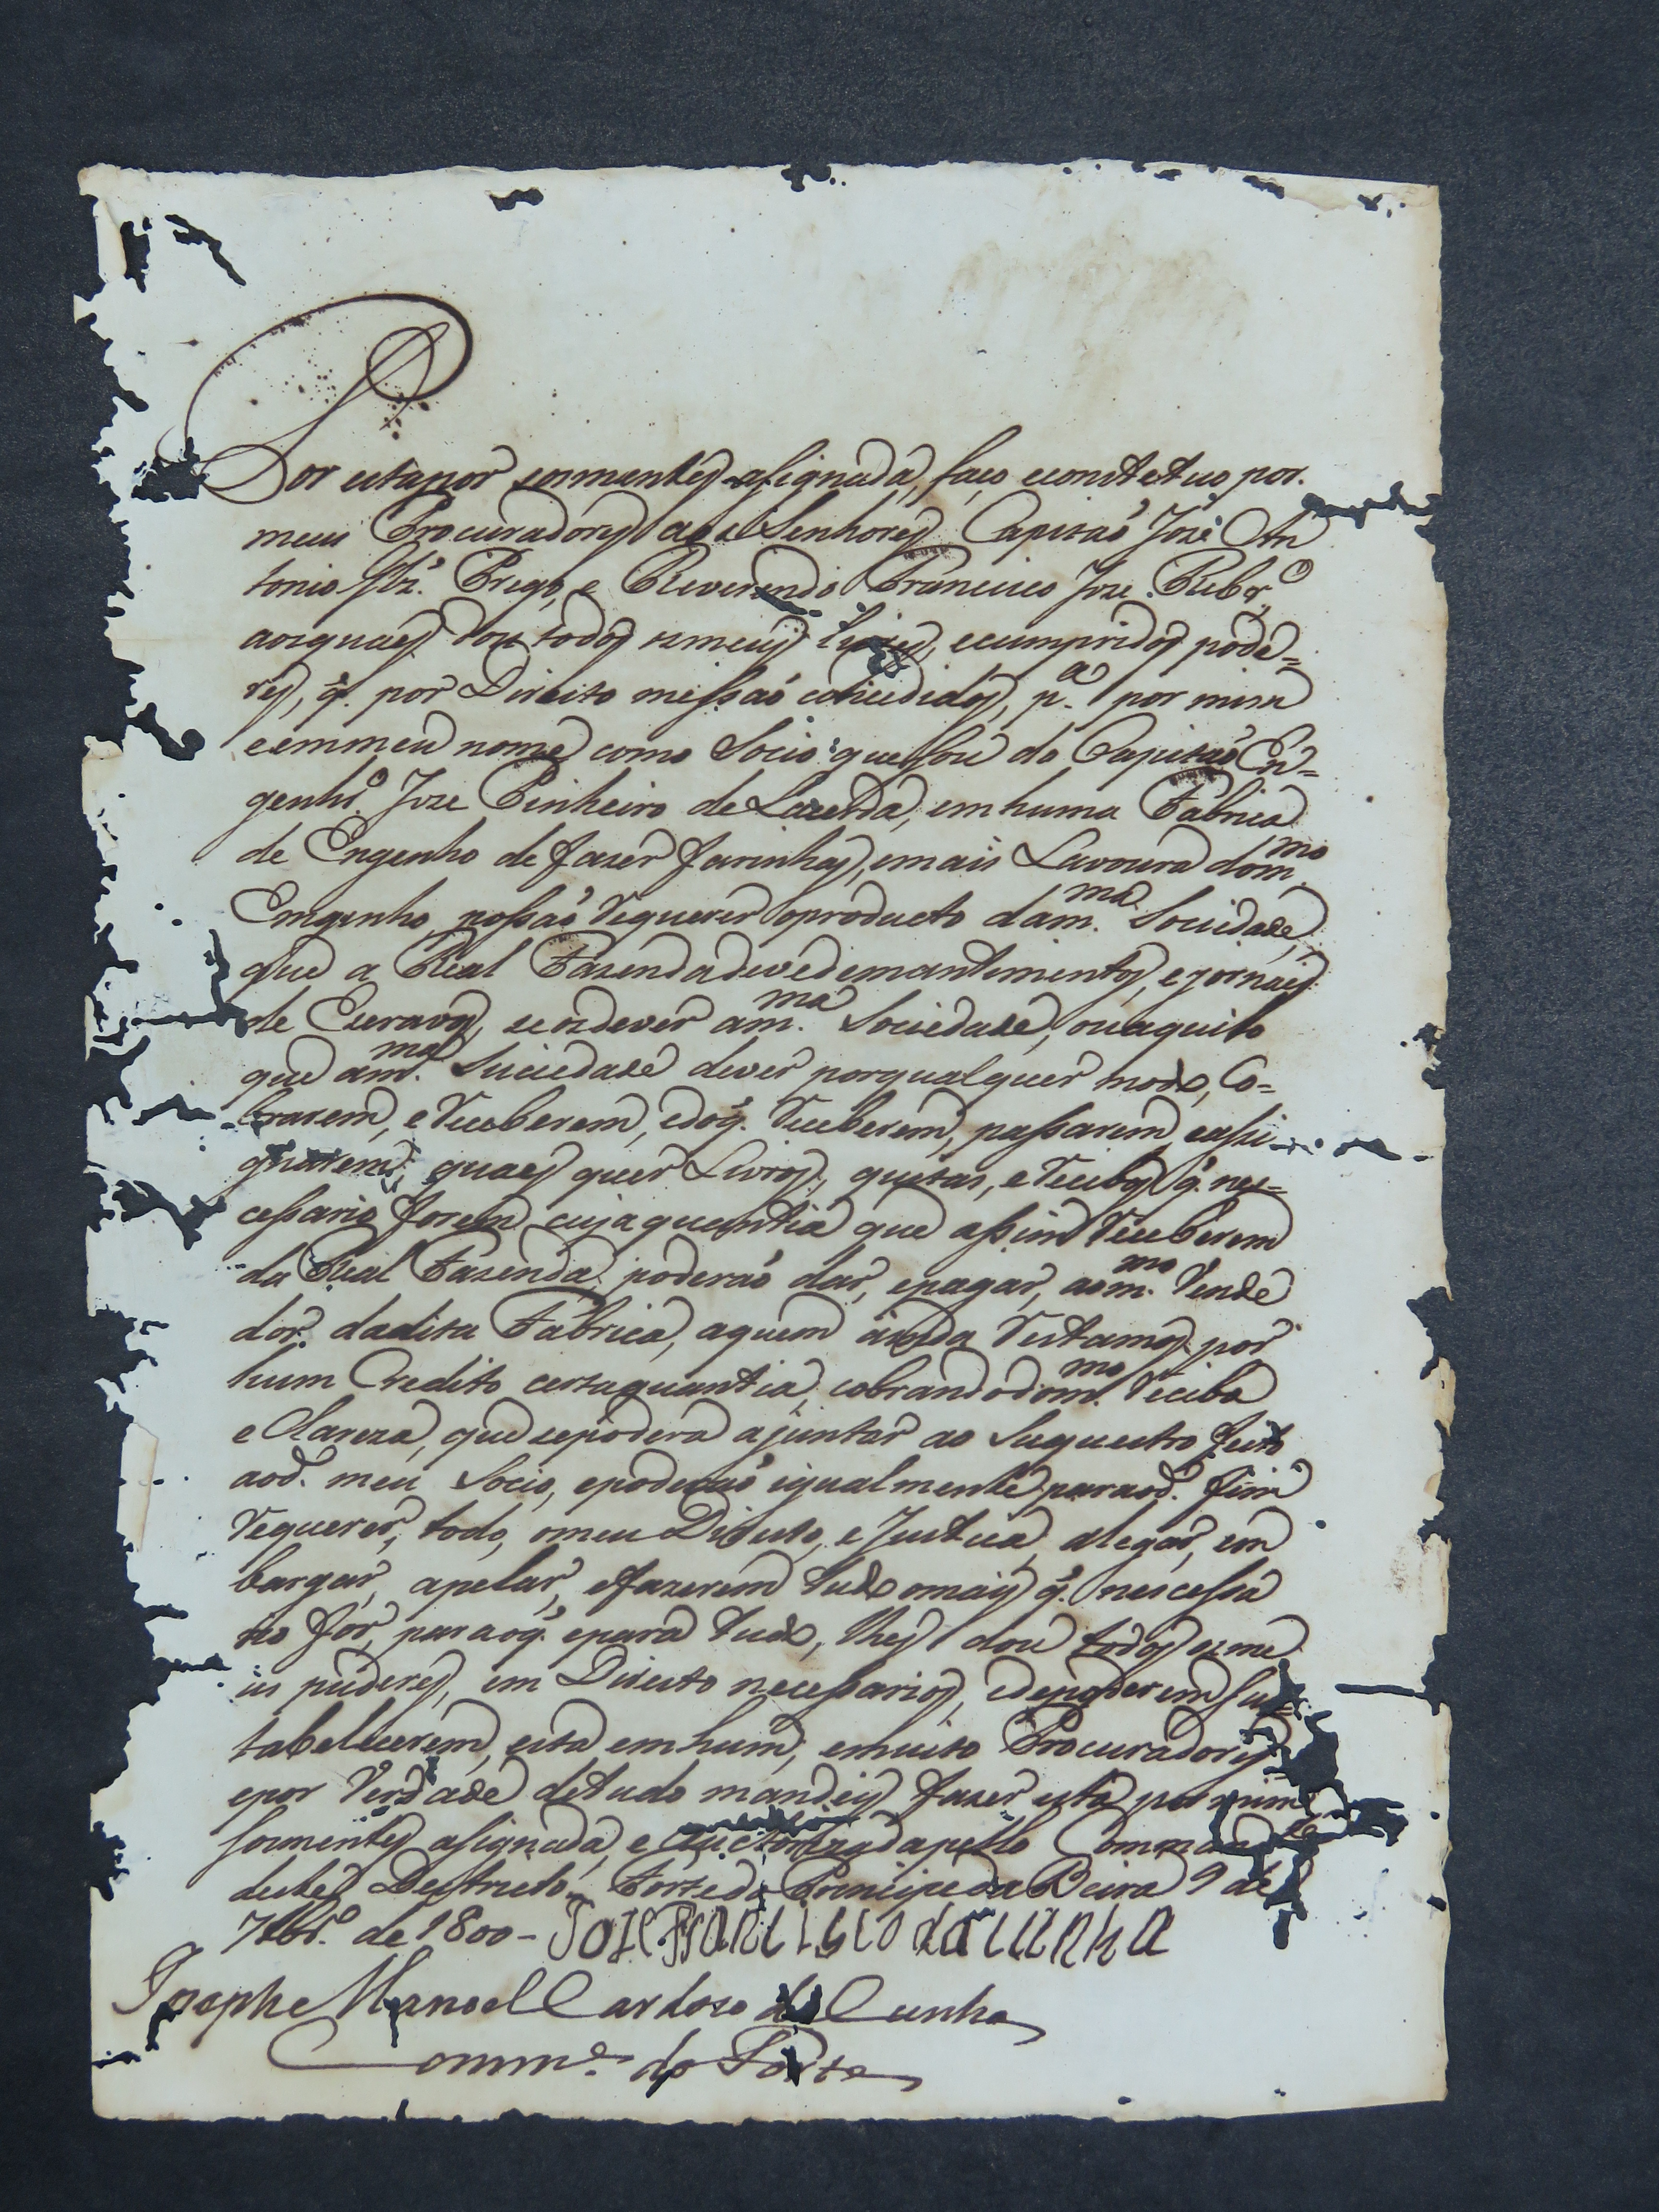 Por esta por somentes asignada, faço econstetuo por.
meus Procuradores aos Senhores Capitaõ Jozé An
tonio Glz.' Prego, e Reverendo Francisco Joze Ribr.º
aosquaes dou todos osmeus livres, ecumpridos pode=
res, q̃. por Direito messaõ consedidos, p.ª por mim
eemmeu nome como Socio que sou do Capitaõ En=
genhr.º Joze Pinheiro de Lacerda, emhuma Fabrica
de Engenho de fazer farinhas, emais Lavoura dom.mo
Emgenho, possaõ requerer oproducto dam.ma Sociedade,
que a Real Fazenda deve demantimentos, e jornaes
de Escravos, seos dever am.ma Sociedade, ou aquilo
que am.ma Suciedade dever porqualquer modo, Co=
brarem, e receberem, edoq̃. receberem, passarem, eassi
gnarem, quaes quer Livros, quitas, e recibos q̃. nes=
cessario forem cuja quantia que assim receberem
da Real Fazenda poderaõ dar, epagar, aom.mo Vende
dor. dadita Fabrica, aquem ainda restamos por
hum Credito certa quantia, cobrandodom.mo recibo
e Clareza, que sepoderá ajuntar ao Suquestro feito
aod. meu Socio, epoderaõ igualmente paraod. fim
requerer, todo, omeu Direito, e Justiça, alegar, em
bargar, apelar, efazerem tudo omais q̃. nescessa
rio for, para oq̃. epara tudo, lhes dou todos os me
us puderes, em Direito necessarios, edepoderem sus
tabellecerem, esta emhum, emuito Procuradores
epor Verdade detudo mandey fazer esta por mim
somentes asignada, e authorizada pello Command.te
deste Destricto. Forte do Principe da Beira 9 de
7br.º de 1800 - Joze Francisco da Cunha
Josephe Manoel Cardoso da Cunha
Comm.e do Forte